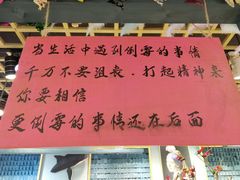 当生活中遇到倒霉的事情
千万不要沮丧,打起精神来
你要相信
更倒霉的事情还在后面